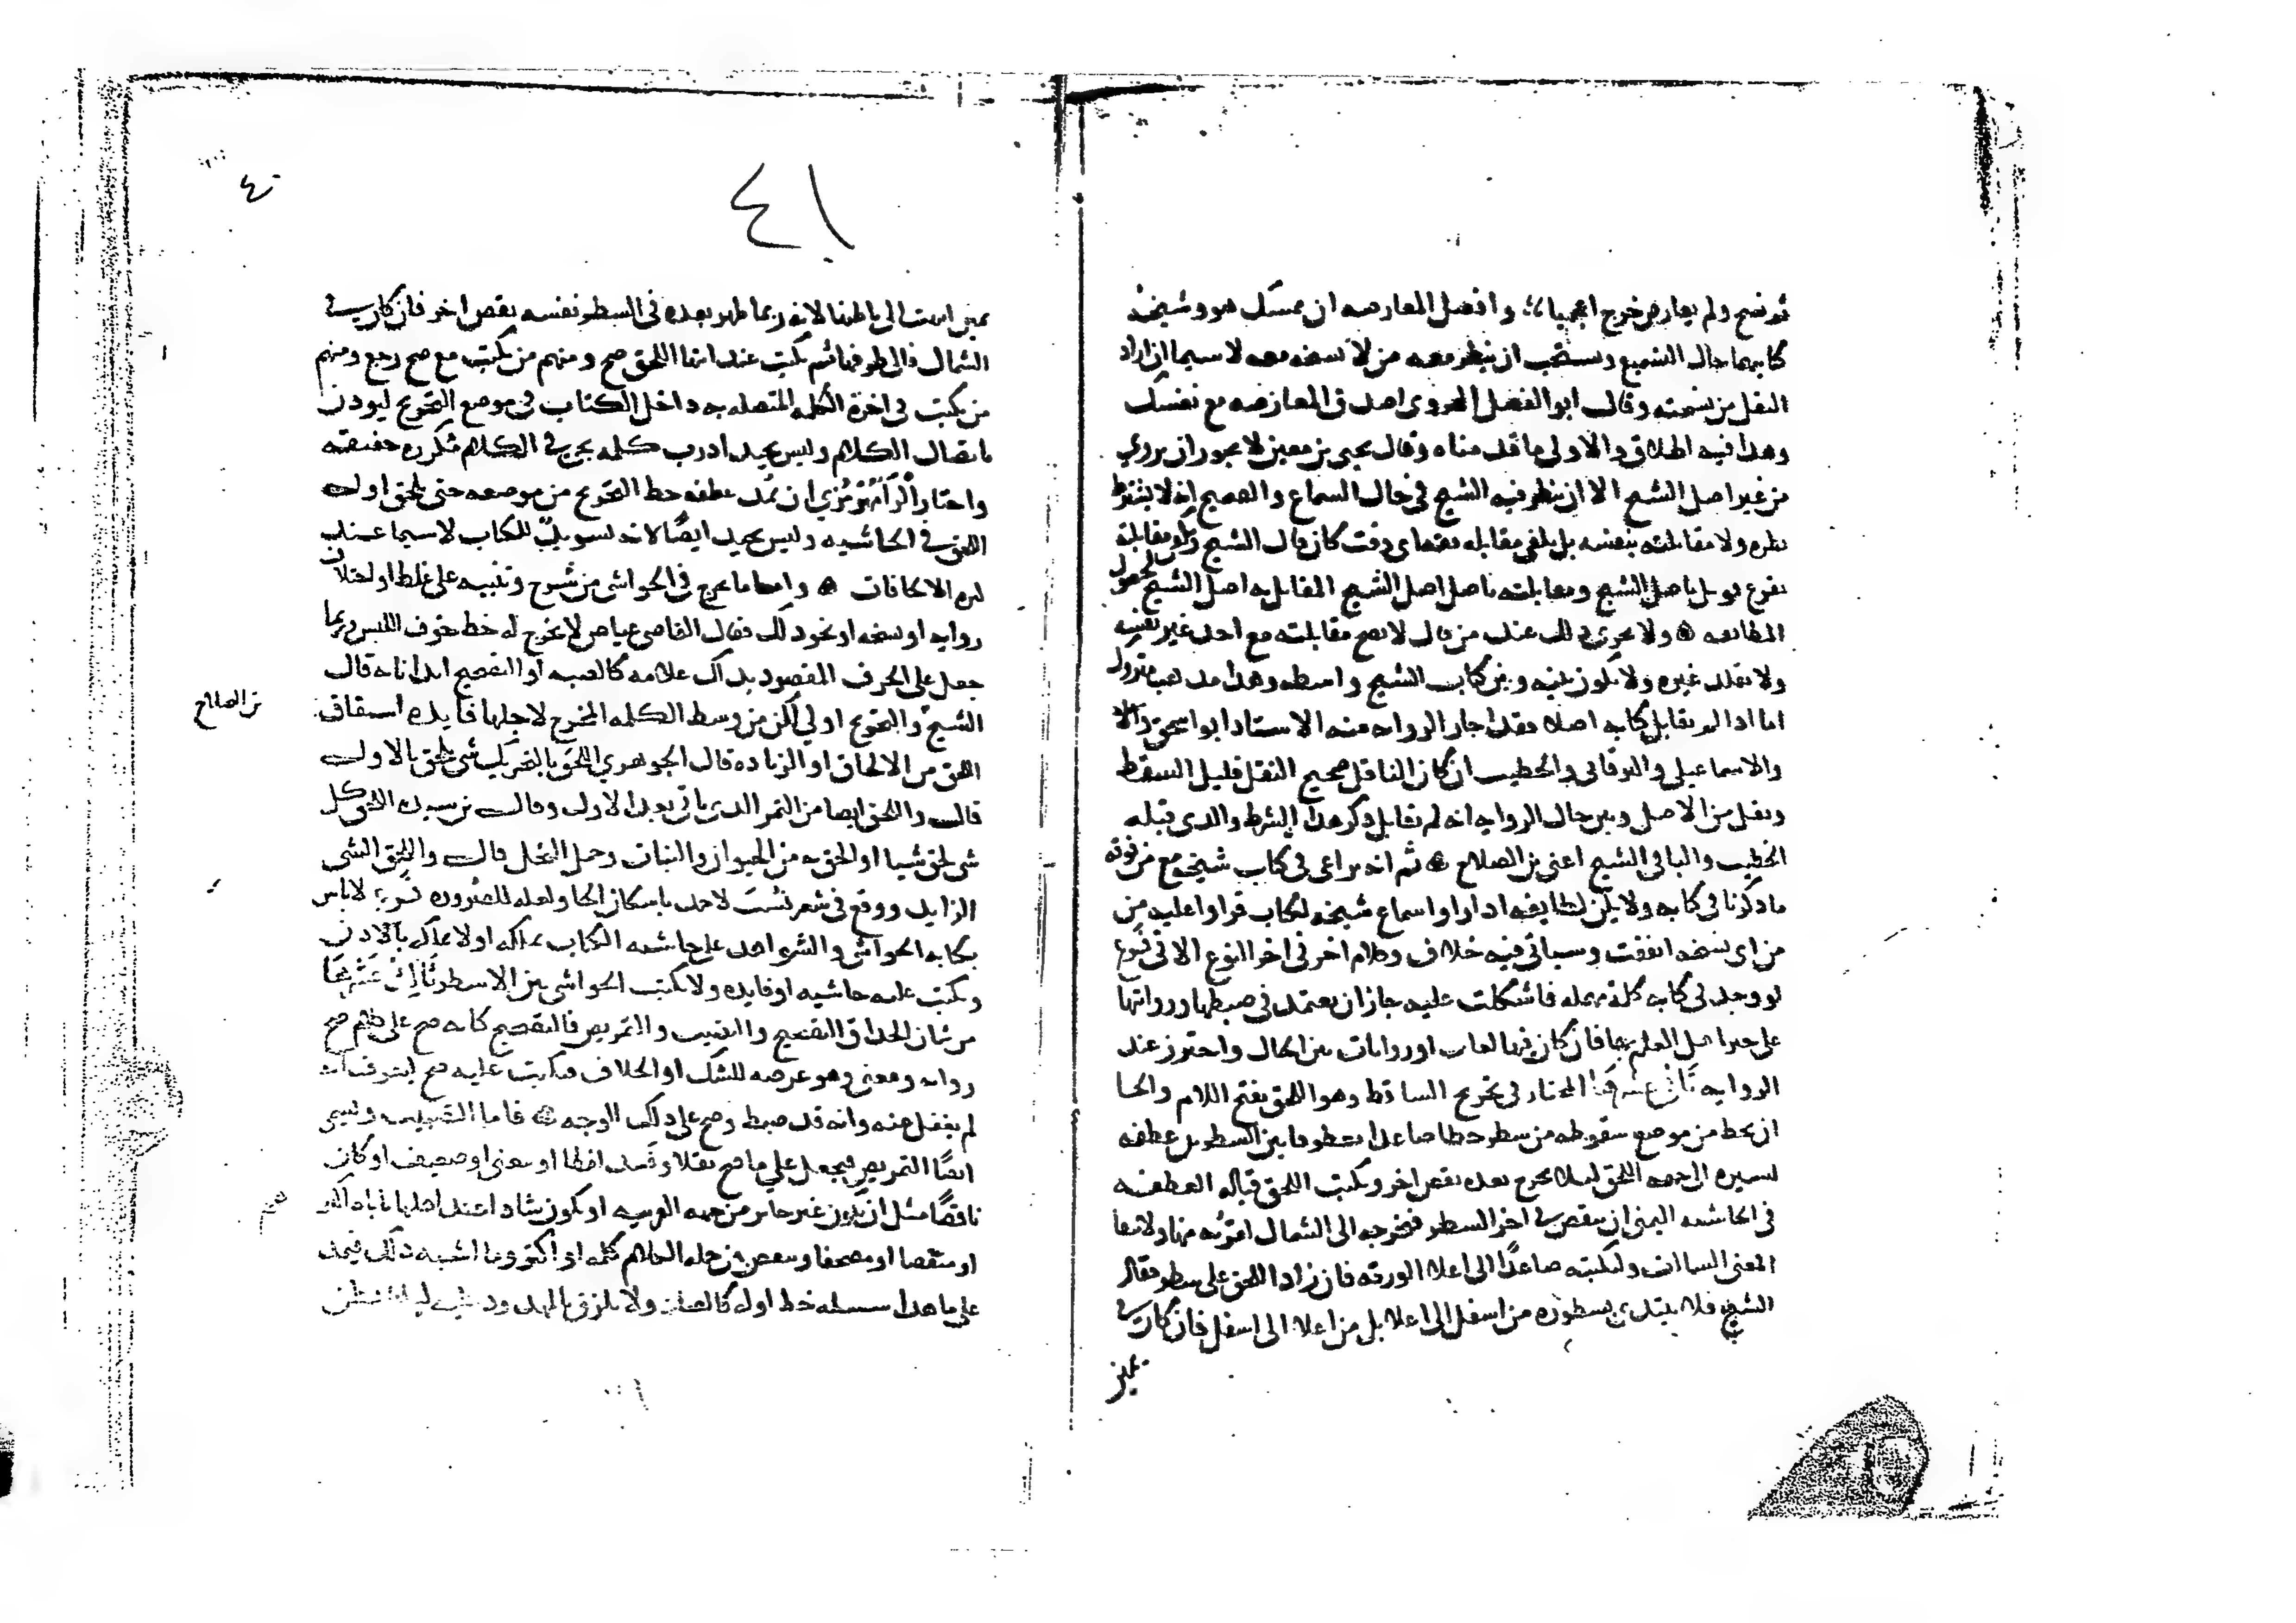 ثم نسخ ولم يعارض خرج اعجميا وافضل المعارضه ان يمسك هو وشيخه
كتابيهما حال التسميع ويستحب ان ينظر معه من لا نسخه معه لا سيما ان اراد
النقل من نسخته وقال ابو الفضل الهروى اصدق المعارضه مع نفسك
وهذا فيه اطلاق والاولى ما قدمناه وقال يحيى بن معين لا يجوز ان يروي
من غير اصل الشيخ الا ان ينظر فيه الشيخ في حال السماع والصحيح انه لا يشترط
نظره ولا مقابلته بنفسه بل يكفي مقابله ثقه اى وقت كان قال الشيخ وتكفي مقابلته
بفرع قوبل باصل الشيخ ومقابلته باصل اصل الشيخ المقابل به اصل الشيخ لحصول
المطابقه ولا يجزى ذلك عند من قال لا يصح مقابلته مع احد غير نفسه
ولا يقلد غيره ولا يكون بينه وبين كتاب الشيخ واسطه وهذا مذهب متروك
اما اذا لم يقابل كتابه اصلا فقد اجاز الروايه منه الاستاد ابو اسحق
والاسماعيلي والبرقاني والخطيب ان كان الناقل صحيح النقل قليل السقط
ونقل من الاصل وبين حال الروايه انه لم يقابل ذكر هذا الشرط والذى قبله
الخطيب والباقي الشيخ اعنى بن الصلاح ثم انه يراعى في كتاب شيخه مع من فوقه
ما ذكرنا في كتابه ولا يكن كطايفه اذا راوا سماع شيخه لكتاب قراوا عليه من
من اى نسخه اتفقت وسياتي فيه خلاف وكلام اخر في اخر النوع الاتي فرع
لو وجد في كتابه كلمة مهمله فاشكلت عليه جاز ان يعتمد في ضبطها وروايتها
على خبر اهل العلم بها فان كان فيها لغات او روايات بين الحال واحترز عند
الروايه المختار في تخريج الساقط وهو اللحق بفتح اللام والحا
ان يخط من موضع سقوطه من سطر خطا صاعدا معطوفا بين السطرين عطفه
يسيره الى جهه اللحق ليلا يخرج بعده نقص اخر ويكتب اللحق قباله العطفه
في الحاشيه اليمنى ان ينقص في اخر السطر فيخرجه الى الشمال لقربه منها ولانتفا
المعنى السالف وليكتبه صاعدًا الى اعلا الورقه فان زاد اللحق على سطر فقال
الشيخ فلا يبتدى بسطوره من اسفل الى اعلا بل من اعلا الى اسفل فان كان في
يمين
٤٠
٤١
يمين انتهت الى باطنها لانه ربما ظهر بعده في السطر نفسه نقص اخر فان كان في
الشمال فالى طرفها ثم يكتب عند انتها اللحق صح ومنهم من يكتب مع صح رجع ومنهم
من يكتب في اخره الكلمه المتصله به داخل الكتاب في موضع التخريج ليوذن
باتصال الكلام وليس بجيد اذ رب كلمه تجي في الكلام مكرره حقيقه
واختار الرامهرمزي ان يمد عطفه خط التخريج من موضعه حتى يلحق اول
اللحق في الحاشيه وليس بجيد ايضًا لانه تسويد للكتاب لا سيما عند
كثره الالحاقات واما ما يخرج في الحواشي من شرح وتنبيه على غلط او اختلاف
روايه او نسخه او نحو ذلك فقال القاضي عياض لا يخرج له خط خوف اللبس وربما
جعل على الحرف المقصود بذلك علامه كالضبه او التصحيح ايذانا به قال
الشيخ والتخريج اولي لكن من وسط الكلمه المخرج لاجلها فايده اشتقاق
اللحق من الالحاق او الزياده قال الجوهري اللحق بالتحريك شى يلحق بالاول
قال واللحق ايضا من التمر الذى ياتي بعد الاول وقال بن سيده اللحق كل
شى لحق شيا او الحق به من الحيوان والنبات وحمل النخل قال واللحق الشى
الزايد ووقع في شعر نسب لاحمد باسكان الحا ولعله للضروره فرع لا باس
بكتابه الحواشي والشواهد على حاشيه الكتاب يملكه او لا يملكه بالاذن
ويكتب عليه حاشيه او فايده ولا يكتب الحواشي بين الاسطر
من شان الحذاق التصحيح والتضبيب والتمريض فالتصحيح كتابه صح على كلام صح
روايه ومعنى وهو عرضه للشك او الخلاف فيكتب عليه صح ليعرف انه
لم يغفل عنه وانه قد ضبط وصح على ذلك الوجه فاما التضبيب ويسمى
ايضًا التمريض فيجعل على ما صح نقلا وفسد لفظا او معنى او ضعيف او كان
ناقصًا مثل ان يكون غير جايز من جهه العربيه او يكون شاذا عند اهلها
او منقصا او مصحفا وينقص من جمله الكلام كلمه او اكثر وما اشبه ذلك فيمد
على ما هذا سبيله خط اوله كالصاد ولا يلزق بالممدود عليه ليلا يظن
بن الصلاح